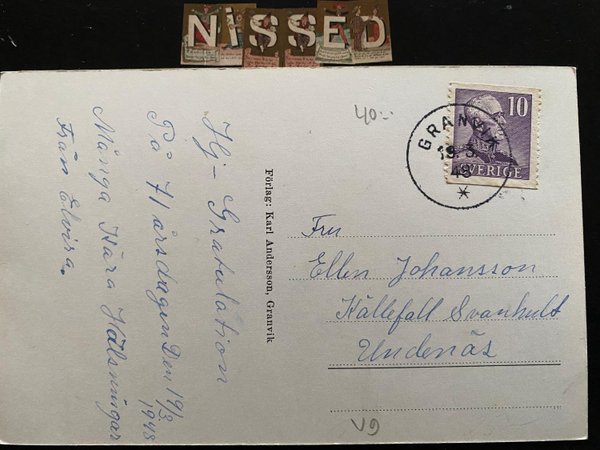 NiSSED
40:-
10
SVERIGE
GRANVIK
19. 3.
48
Hj-Gratulation
På 71 årsdagen Den 19/3
1948
Många Kära Hälsningar
Från Elvira.
Förlag: Karl Andersson, Granvik
Fru
Ellen Johansson
Källefall Svanhult
Undenäs
V9